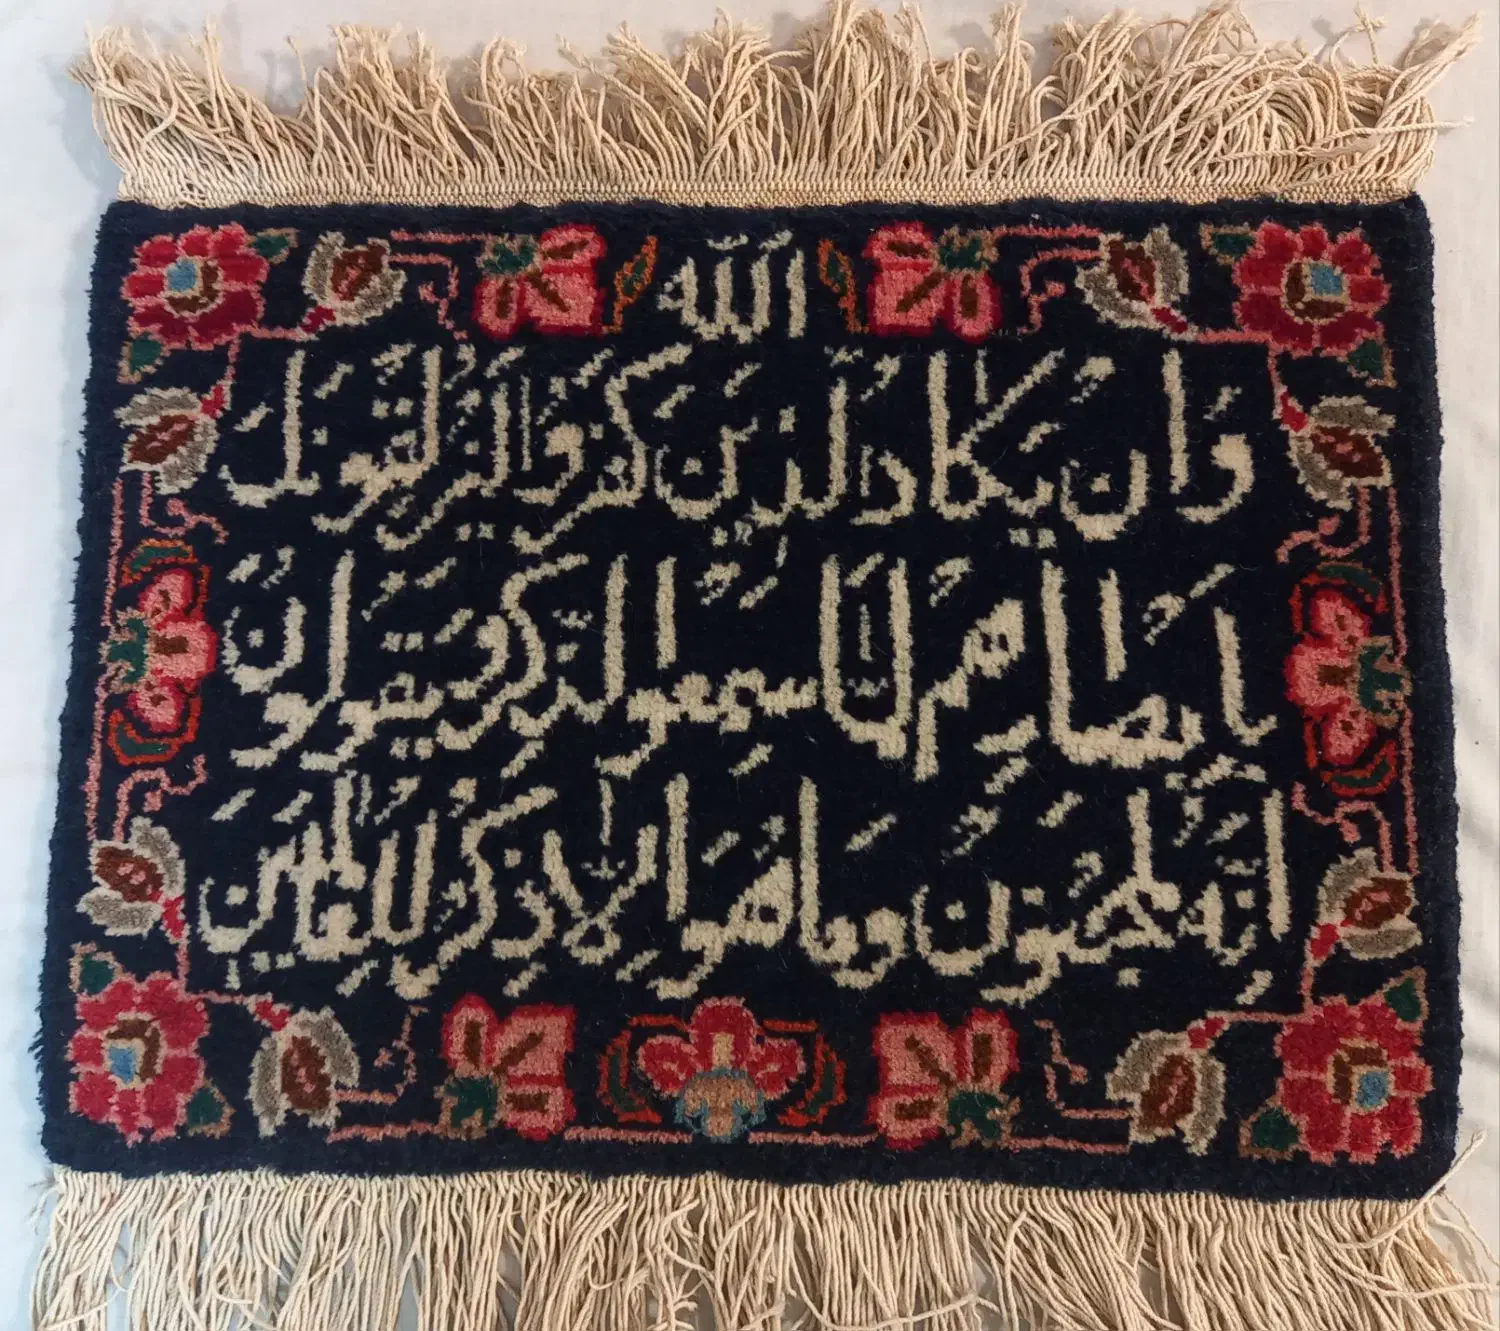 الله
وَاِنْ يَكَادُ الَّذِينَ كَفَرُوا لَيُزْلِقُونَكَ
بِاَبْصَارِهِمْ لَمَّا سَمِعُوا الذِّكْرَ وَيَقُولُونَ
اِنَّهُ لَمَجْنُونٌ وَمَا هُوَ اِلَّا ذِكْرٌ لِلْعَالَمِينَ